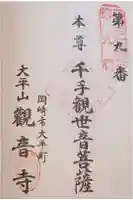 第九番
本尊 千手觀世音菩薩
岡崎市大平町
大平山 觀音寺